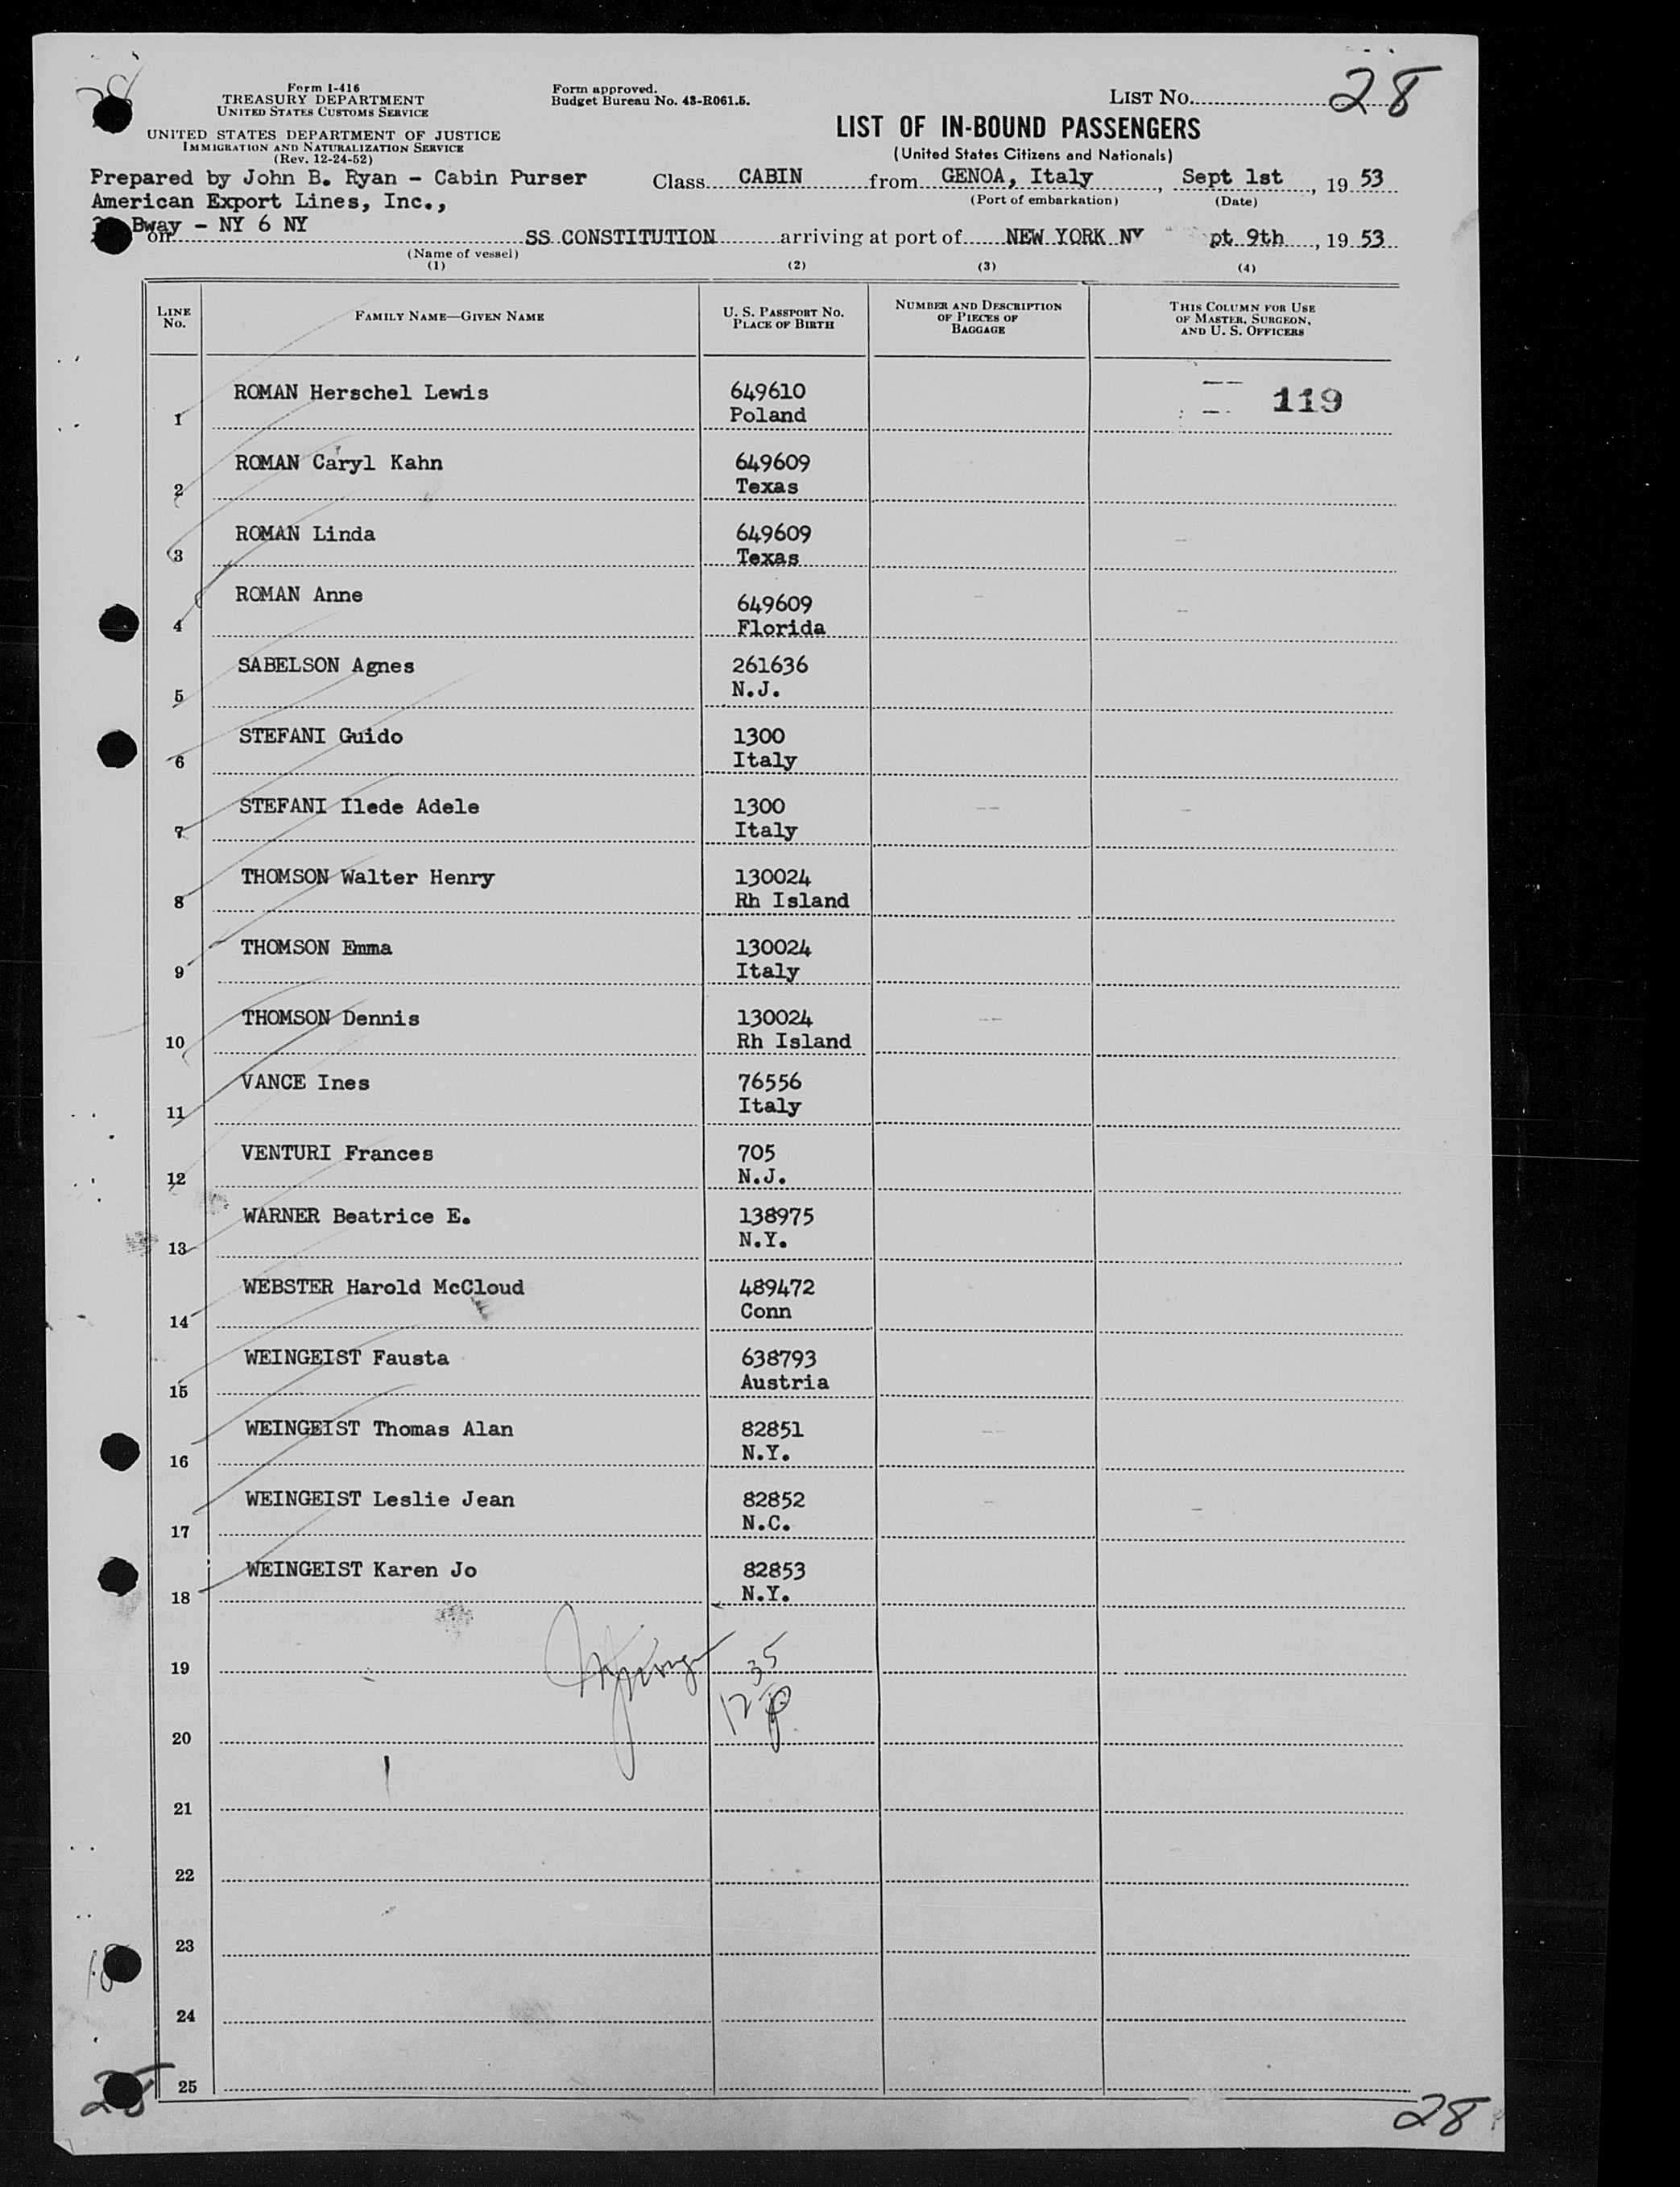 Form I-416
TREASURY DEPARTMENT
UNITED STATES CUSTOMS SERVICE
UNITED STATES DEPARTMENT OF JUSTICE
IMMIGRATION AND NATURALIZATION SERVICE
(Rev. 12-24-52)
Form approved.
Budget Bureau No. 43-R061.5.
LIST NO. 28
LIST OF IN-BOUND PASSENGERS
(United States Citizens and Nationals)
Prepared by John B. Ryan - Cabin Purser
American Export Lines, Inc.,
Bway - NY 6 NY
Class CABIN from GENOA, Italy, Sept 1st, 19 53
(Port of embarkation) (Date)
on SS CONSTITUTION arriving at port of NEW YORK NY pt 9th, 19 53
(Name of vessel)
(1) (2) (3) (4)
LINE NO. FAMILY NAME—GIVEN NAME U. S. PASSPORT NO. PLACE OF BIRTH NUMBER AND DESCRIPTION OF PIECES OF BAGGAGE THIS COLUMN FOR USE OF MASTER, SURGEON, AND U. S. OFFICERS
1 ROMAN Herschel Lewis 649610 119
Poland
2 ROMAN Caryl Kahn 649609
Texas
3 ROMAN Linda 649609
Texas
4 ROMAN Anne 649609
Florida
5 SABELSON Agnes 261636
N.J.
6 STEFANI Guido 1300
Italy
7 STEFANI Ilede Adele 1300
Italy
8 THOMSON Walter Henry 130024
Rh Island
9 THOMSON Emma 130024
Italy
10 THOMSON Dennis 130024
Rh Island
11 VANCE Ines 76556
Italy
12 VENTURI Frances 705
N.J.
13 WARNER Beatrice E. 138975
N.Y.
14 WEBSTER Harold McCloud 489472
Conn
15 WEINGEIST Fausta 638793
Austria
16 WEINGEIST Thomas Alan 82851
N.Y.
17 WEINGEIST Leslie Jean 82852
N.C.
18 WEINGEIST Karen Jo 82853
N.Y.
19
12 35 P
20
21
22
23
24
25
28